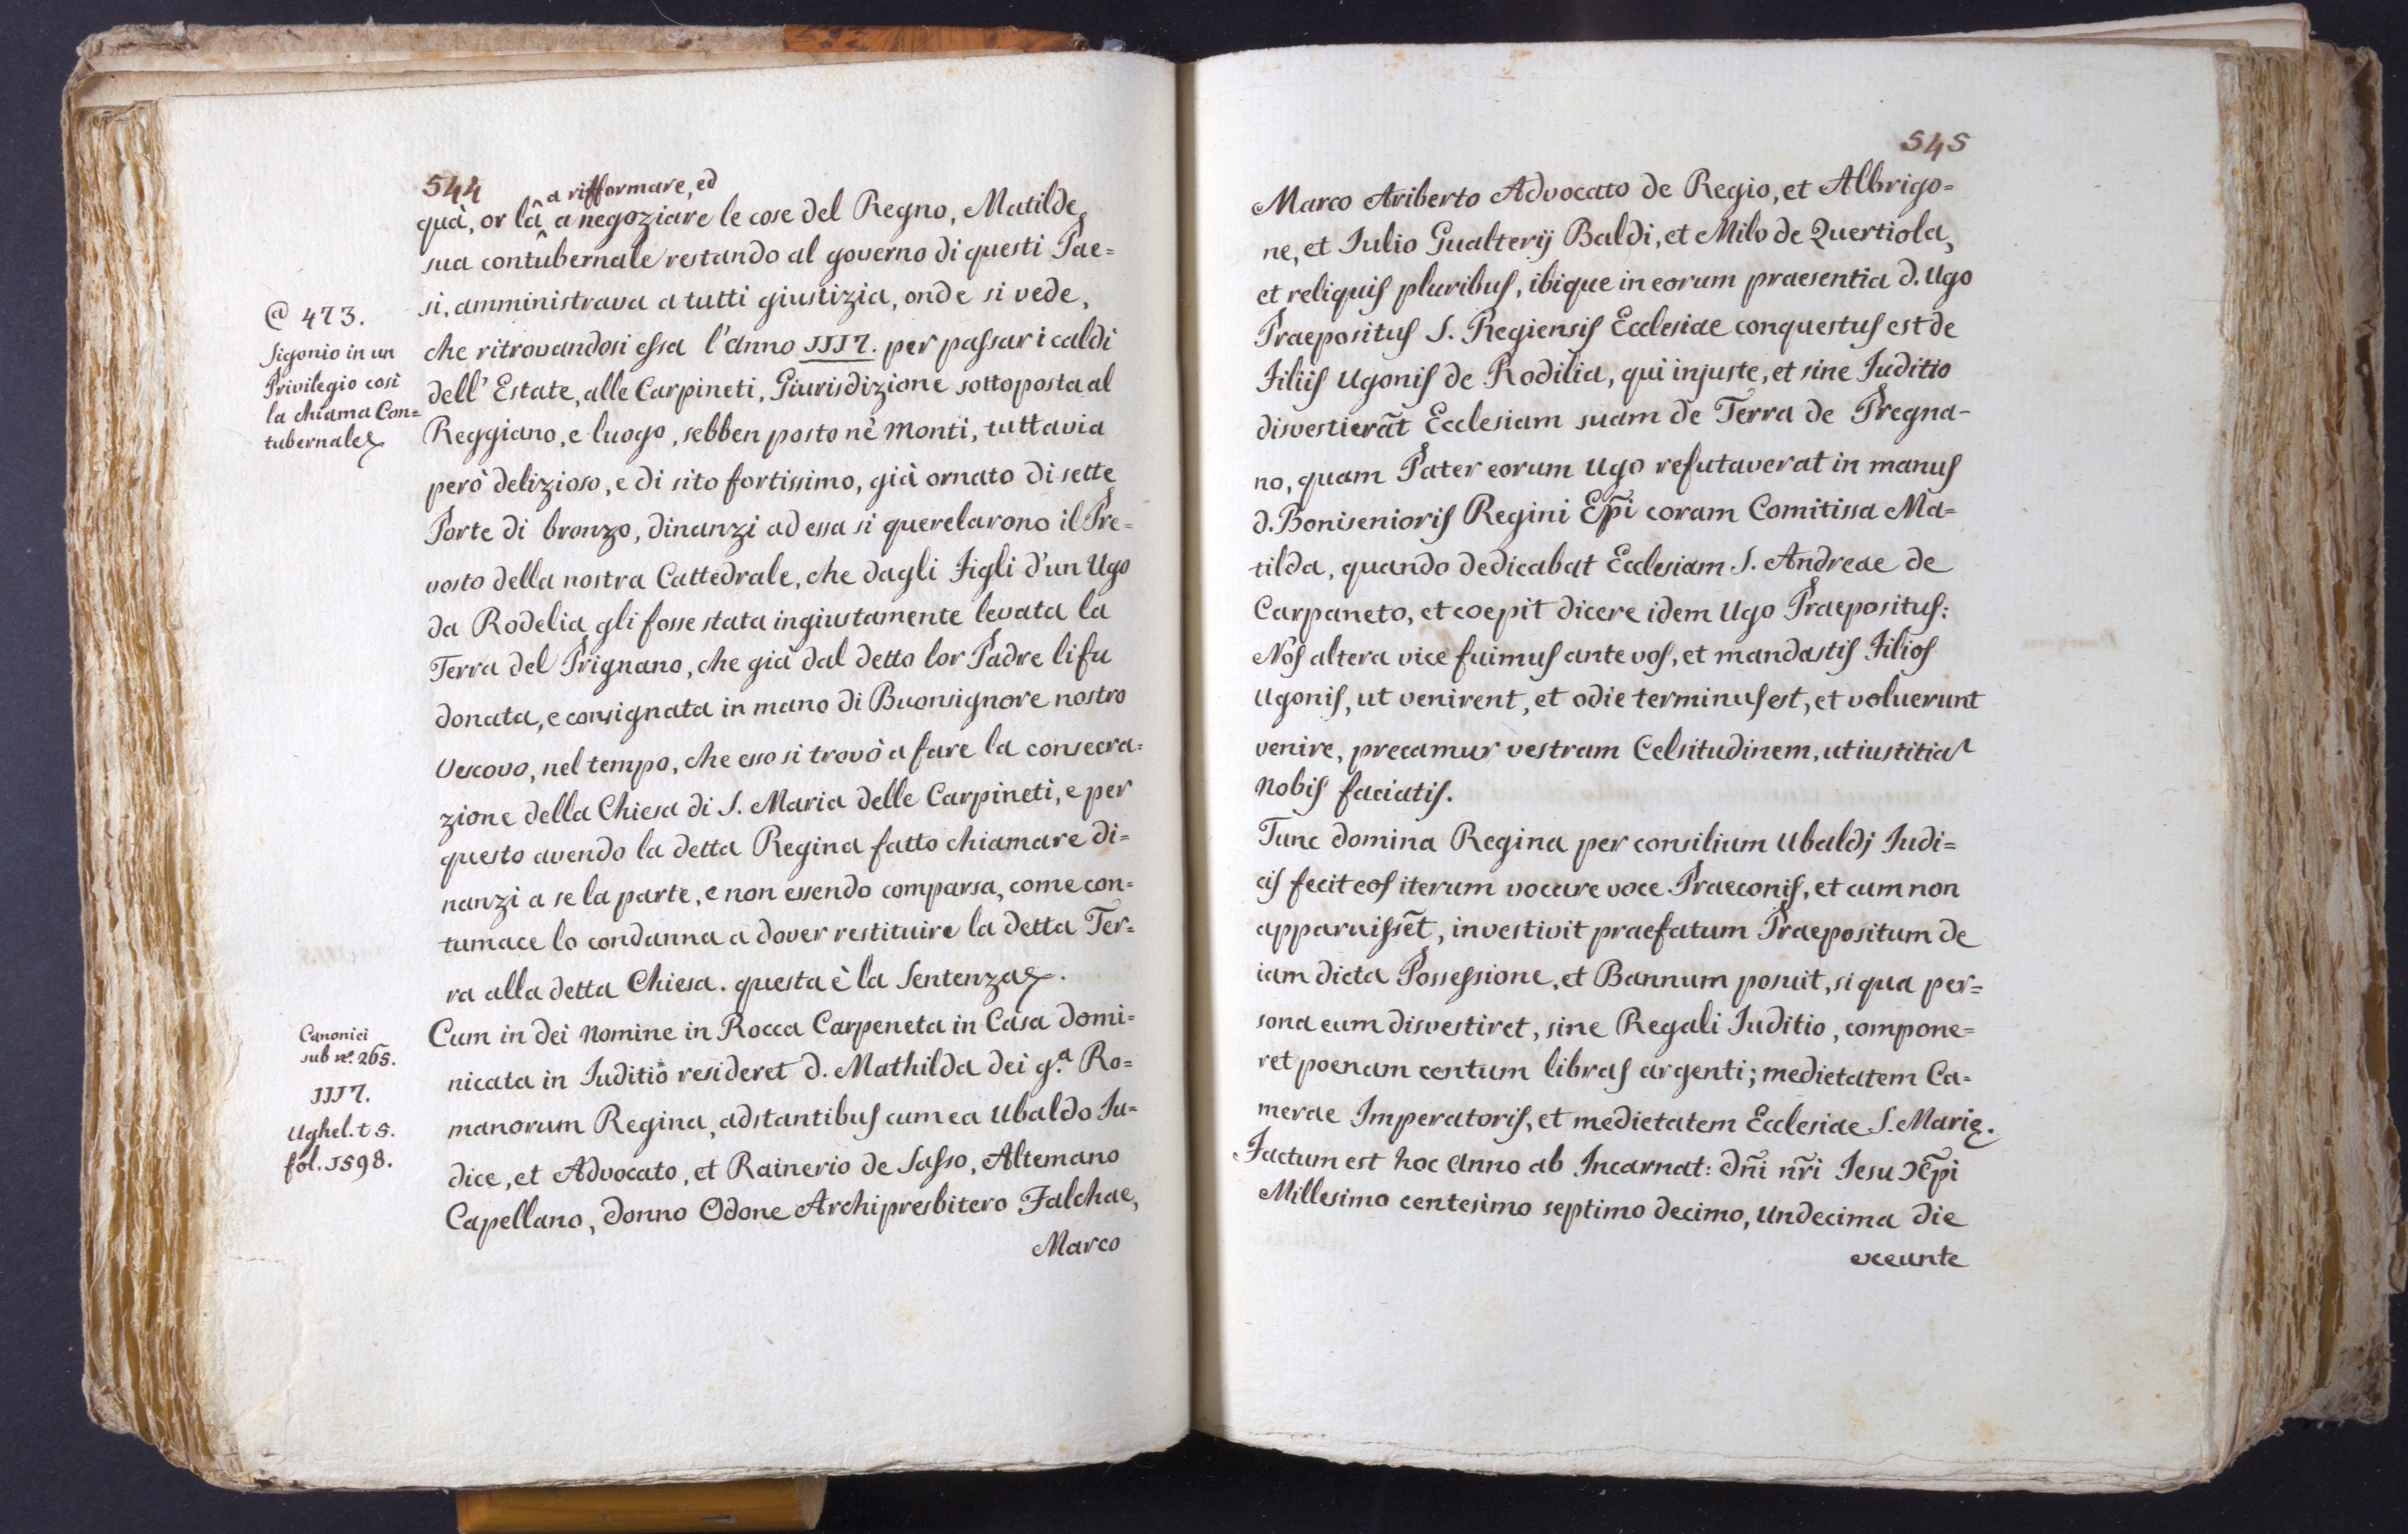 544
a rifformare, ed
quà, or là ^ a negoziare le cose del Regno, Matilde
sua contubernale restando al governo di questi Pae=
si, amministrava a tutti giustizia, onde si vede,
@ 473.
Sigonio in un
Privilegio così
la chiama Con=
tubernale
che ritrovandosi essa l'anno JJJ7. per passar i caldi
dell' Estate, alle Carpineti, Giurisdizione sottoposta al
Reggiano, e luogo, sebben posto nè Monti, tuttavia
però delizioso, e di sito fortissimo, già ornato di sette
Porte di bronzo, dinanzi ad essa si querelarono il Pre=
vosto della nostra Cattedrale, che dagli Figli d'un Ugo
da Rodelia gli fosse stata ingiustamente levata la
Terra del Prignano, che già dal detto lor Padre li fu
donata, e consignata in mano di Buonsignore nostro
Vescovo, nel tempo, che esso si trovò a fare la consecra=
zione della Chiesa di S. Maria delle Carpineti, e per
questo avendo la detta Regina fatto chiamare di=
nanzi a se la parte, e non essendo comparsa, come con=
tumace lo condanna a dover restituire la detta Ter=
ra alla detta Chiesa. questa è la Sentenza.
Canonici
sub nº. 265.
JJJ7.
Ughel. t 5.
fol. J598.
Cum in dei nomine in Rocca Carpeneta in Casa domi=
nicata in Iuditio resideret d. Mathilda dei g.ª Ro=
manorum Regina, adstantibus cum ea Ubaldo Iu=
dice, et Advocato, et Rainerio de Sasso, Altemano
Capellano, donno Odone Archipresbitero Falchae,
Marco
545
Marco Ariberto Advocato de Regio, et Albrigo=
ne, et Iulio Gualterij Baldi, et Milo de Quertiola,
et reliquis pluribus, ibique in eorum praesentia d. Ugo
Praepositus S. Regiensis Ecclesiae conquestus est de
Filiis Ugonis de Rodilia, qui injuste, et sine Iuditio
disvestierāt Ecclesiam suam de Terra de Pregna-
no, quam Pater eorum Ugo refutaverat in manus
d. Bonisenioris Regini Ep̄i coram Comitissa Ma=
tilda, quando dedicabat Ecclesiam S. Andreae de
Carpaneto, et coepit dicere idem Ugo Praepositus:
Nos altera vice fuimus ante vos, et mandastis Filios
Ugonis, ut venirent, et odie terminus est, et voluerunt
venire, precamur vestram Celsitudinem, ut iustitiã
nobis faciatis.
Tunc domina Regina per consilium Ubaldj Iudi=
cis fecit eos iterum vocare voce Praeconis, et cum non
apparuissēt, investivit praefatum Praepositum de
iam dicta Possessione, et Bannum posuit, si qua per=
sona eum disvestiret, sine Regali Iuditio, compone=
ret poenam centum libras argenti; medietatem Ca=
merae Imperatoris, et medietatem Ecclesiae S. Marię.
Factum est hoc Anno ab Incarnat: dn̄i nr̄i Iesu Xp̄i
Millesimo centesimo septimo decimo, Undecima die
exeunte